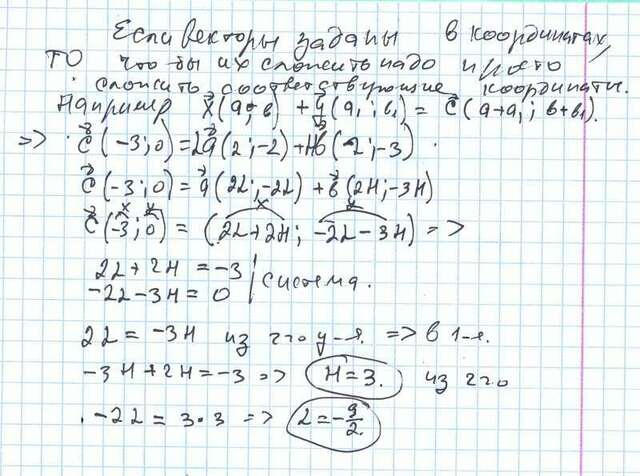 Если векторы заданы в координатах,
то что бы их сложить надо просто
сложить соответствующие координаты.
Например x(a; в) + y(a₁; в₁) = c(a+a₁; в+в₁).
=> c(-3; 0) = La(2; -2) + Hв(2; -3)
c(-3; 0) = a(2L; -2L) + в(2H; -3H)
x y x y
c(-3; 0) = (2L+2H; -2L-3H) =>
2L + 2H = -3
-2L-3H = 0 | система.
2L = -3H из 2го у-я. => в 1-я.
-3H+2H = -3 => H = 3. из 2го
-2L = 3·3 => L = -9/2.